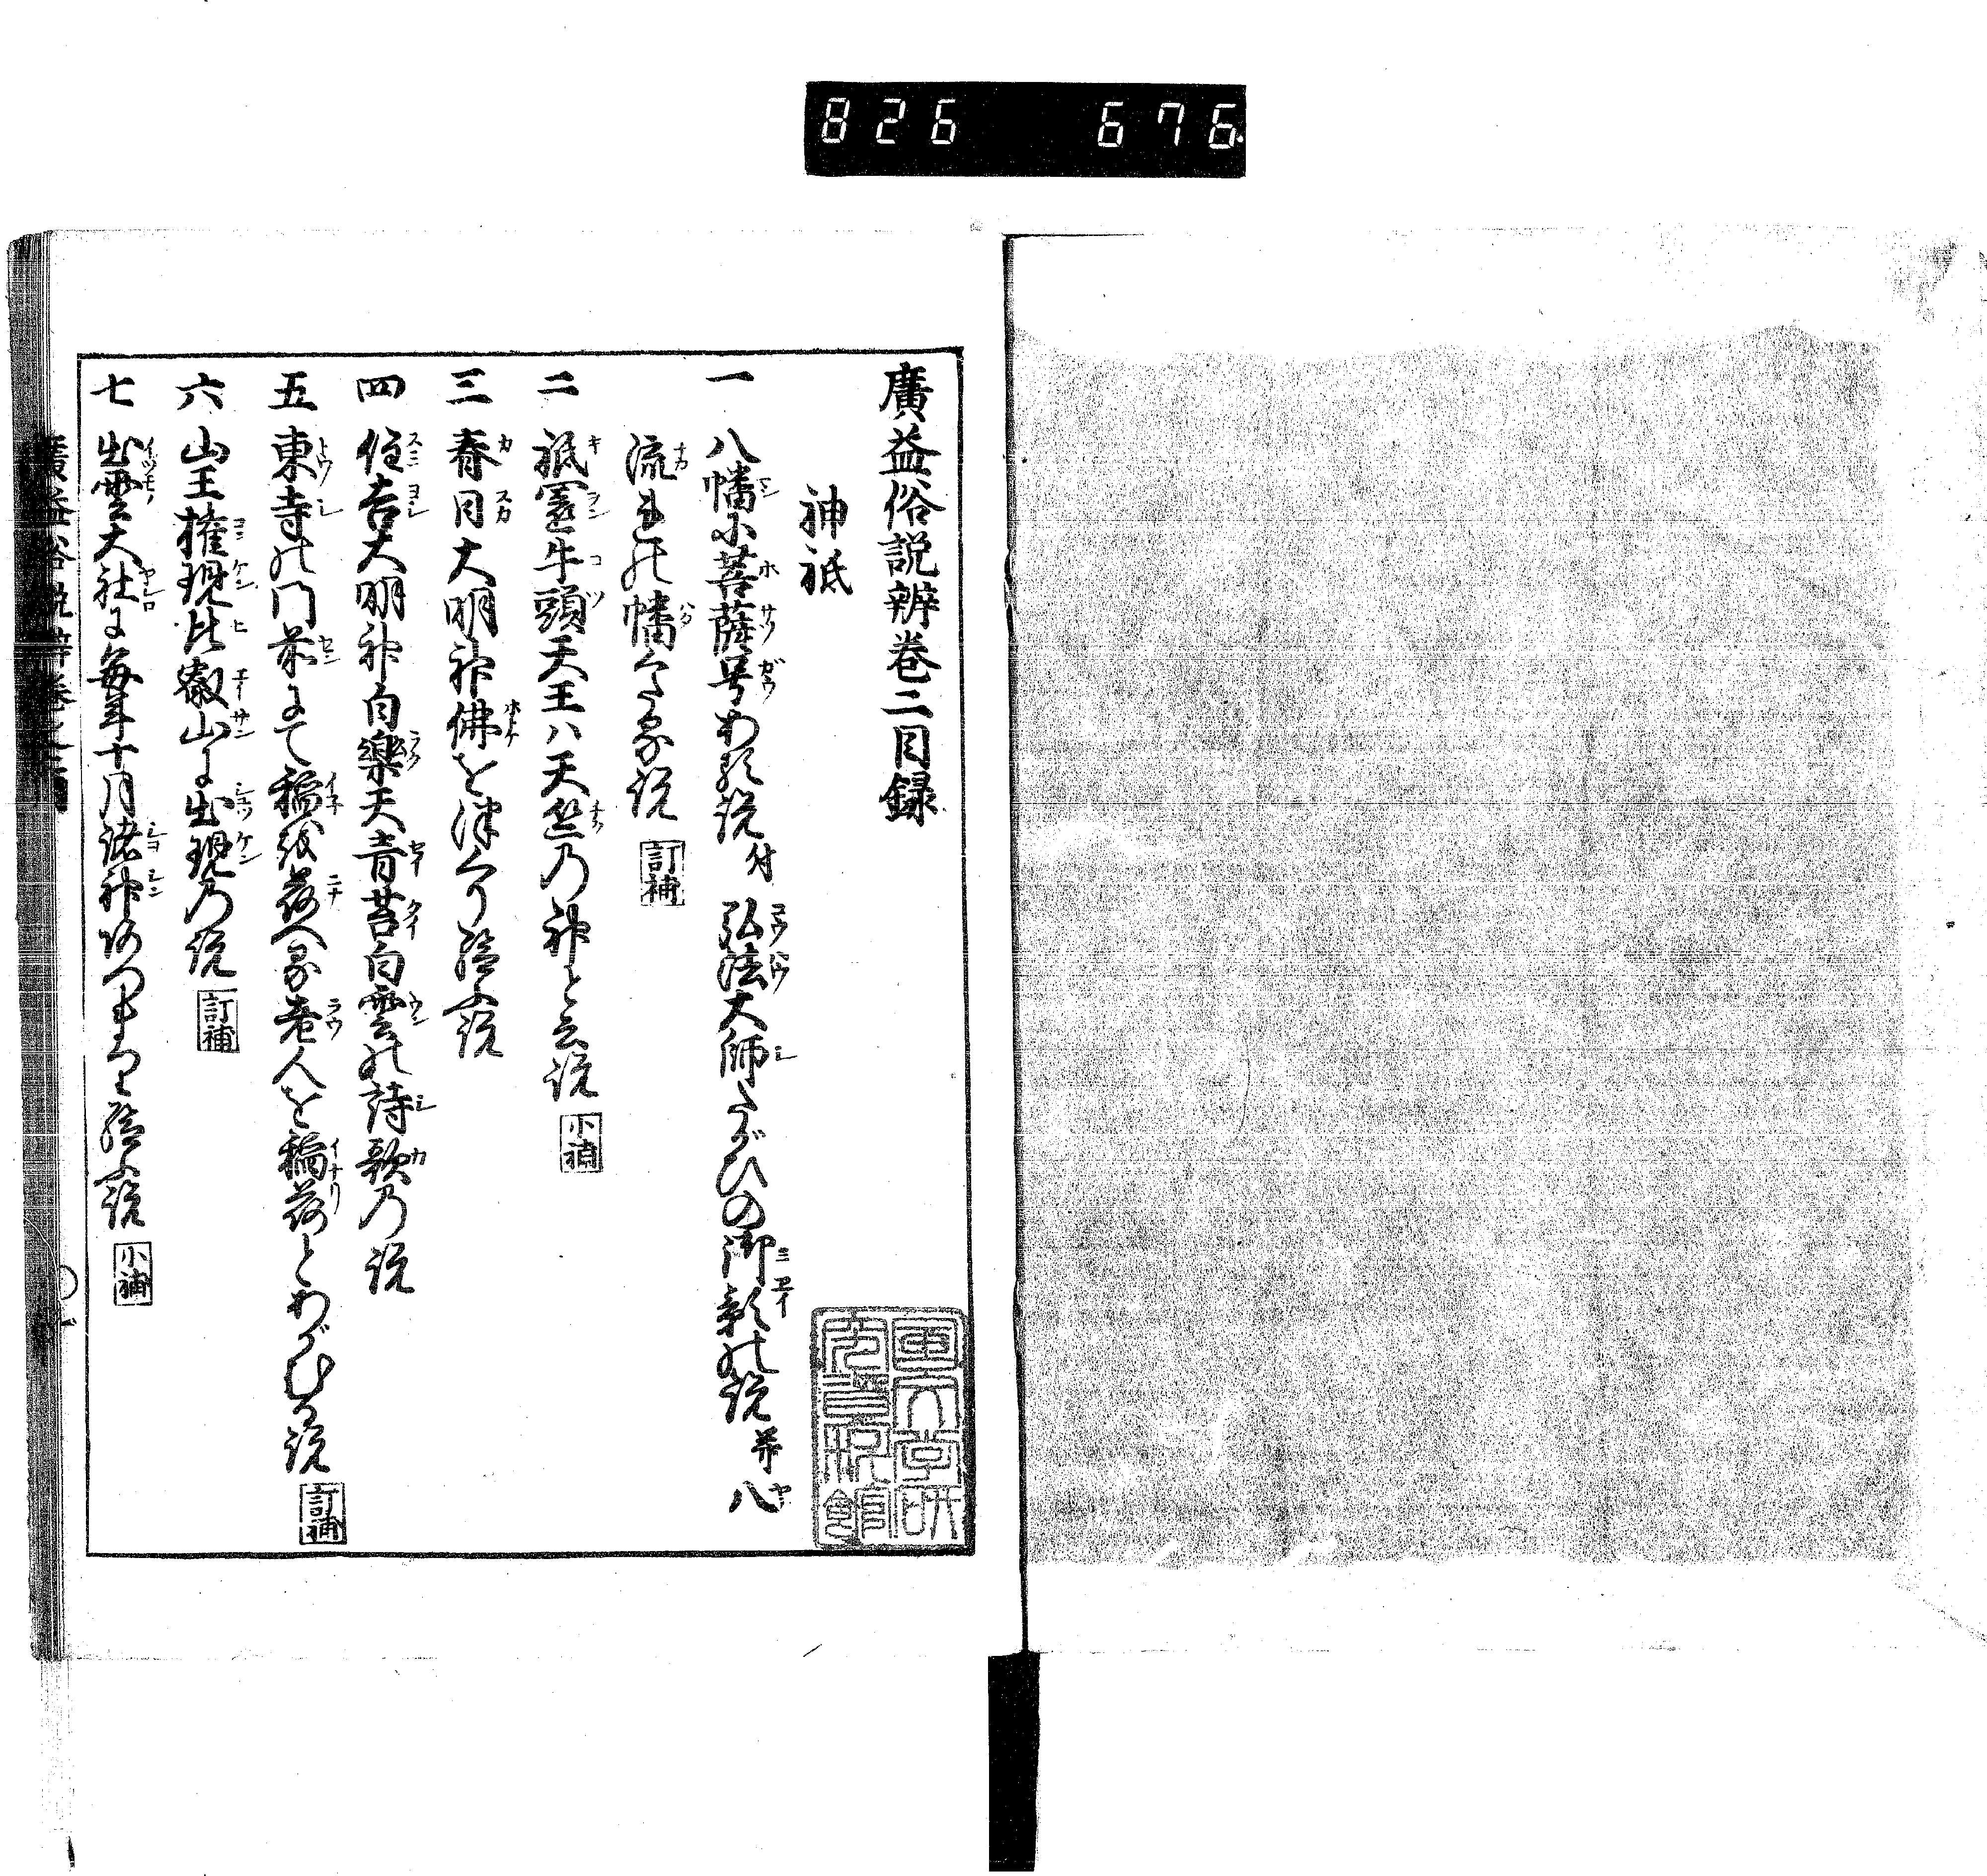 826 676
廣益俗説辨巻二目録
神祇
一 八幡に菩薩号ある説 付 弘法大師たがひの御影の説 并 八
流れの幡くたる説 訂補
二 祇園牛頭天王ハ天竺乃神と云説 小補
三 春日大明神佛を津くり給ふ説
四 住吉大明神白樂天青苔白雲の詩歌乃説
五 東寺の門前にて稲を荷へる老人を稲荷とあがむる説 訂補
六 山王権現比叡山に出現乃説 訂補
七 出雲大社に毎年十月諸神あつまり給ふ説 小補
廣益俗説辨巻之二